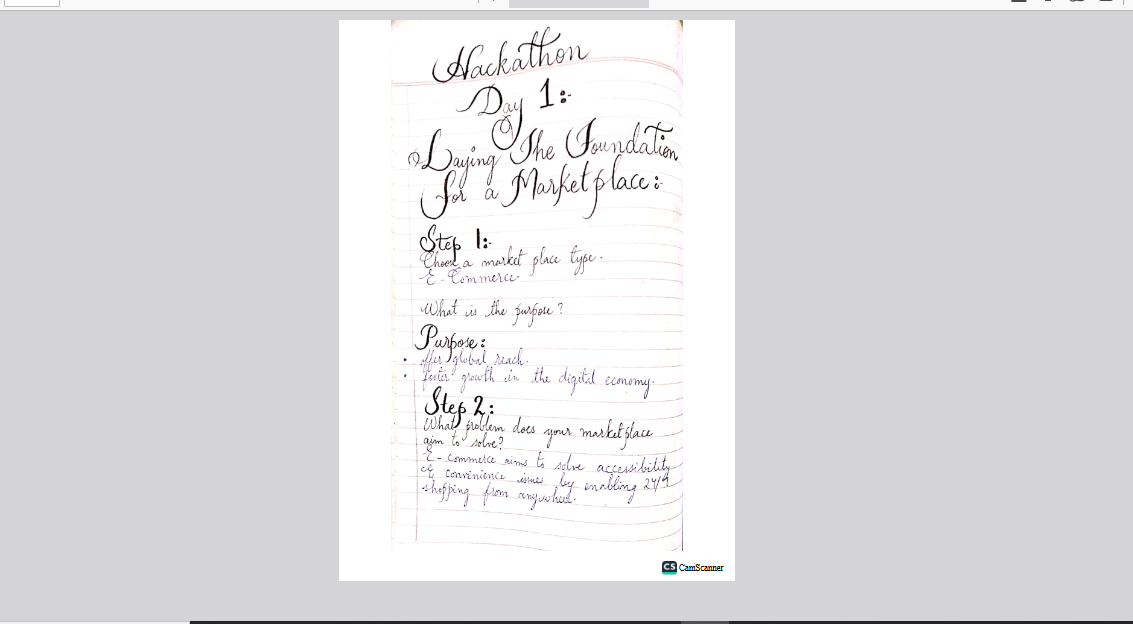 Hackathon
Day 1:-
Laying The Foundation
for a Marketplace:-
Step 1:-
Choose a market place type.
E-Commerce
What is the purpose?
Purpose:
• offer global reach.
• foster growth in the digital economy.
Step 2:
What problem does your marketplace
aim to solve?
E-commerce aims to solve accessibility
& convinience issues by enabling 24/7
shopping from anywhere.
CS CamScanner